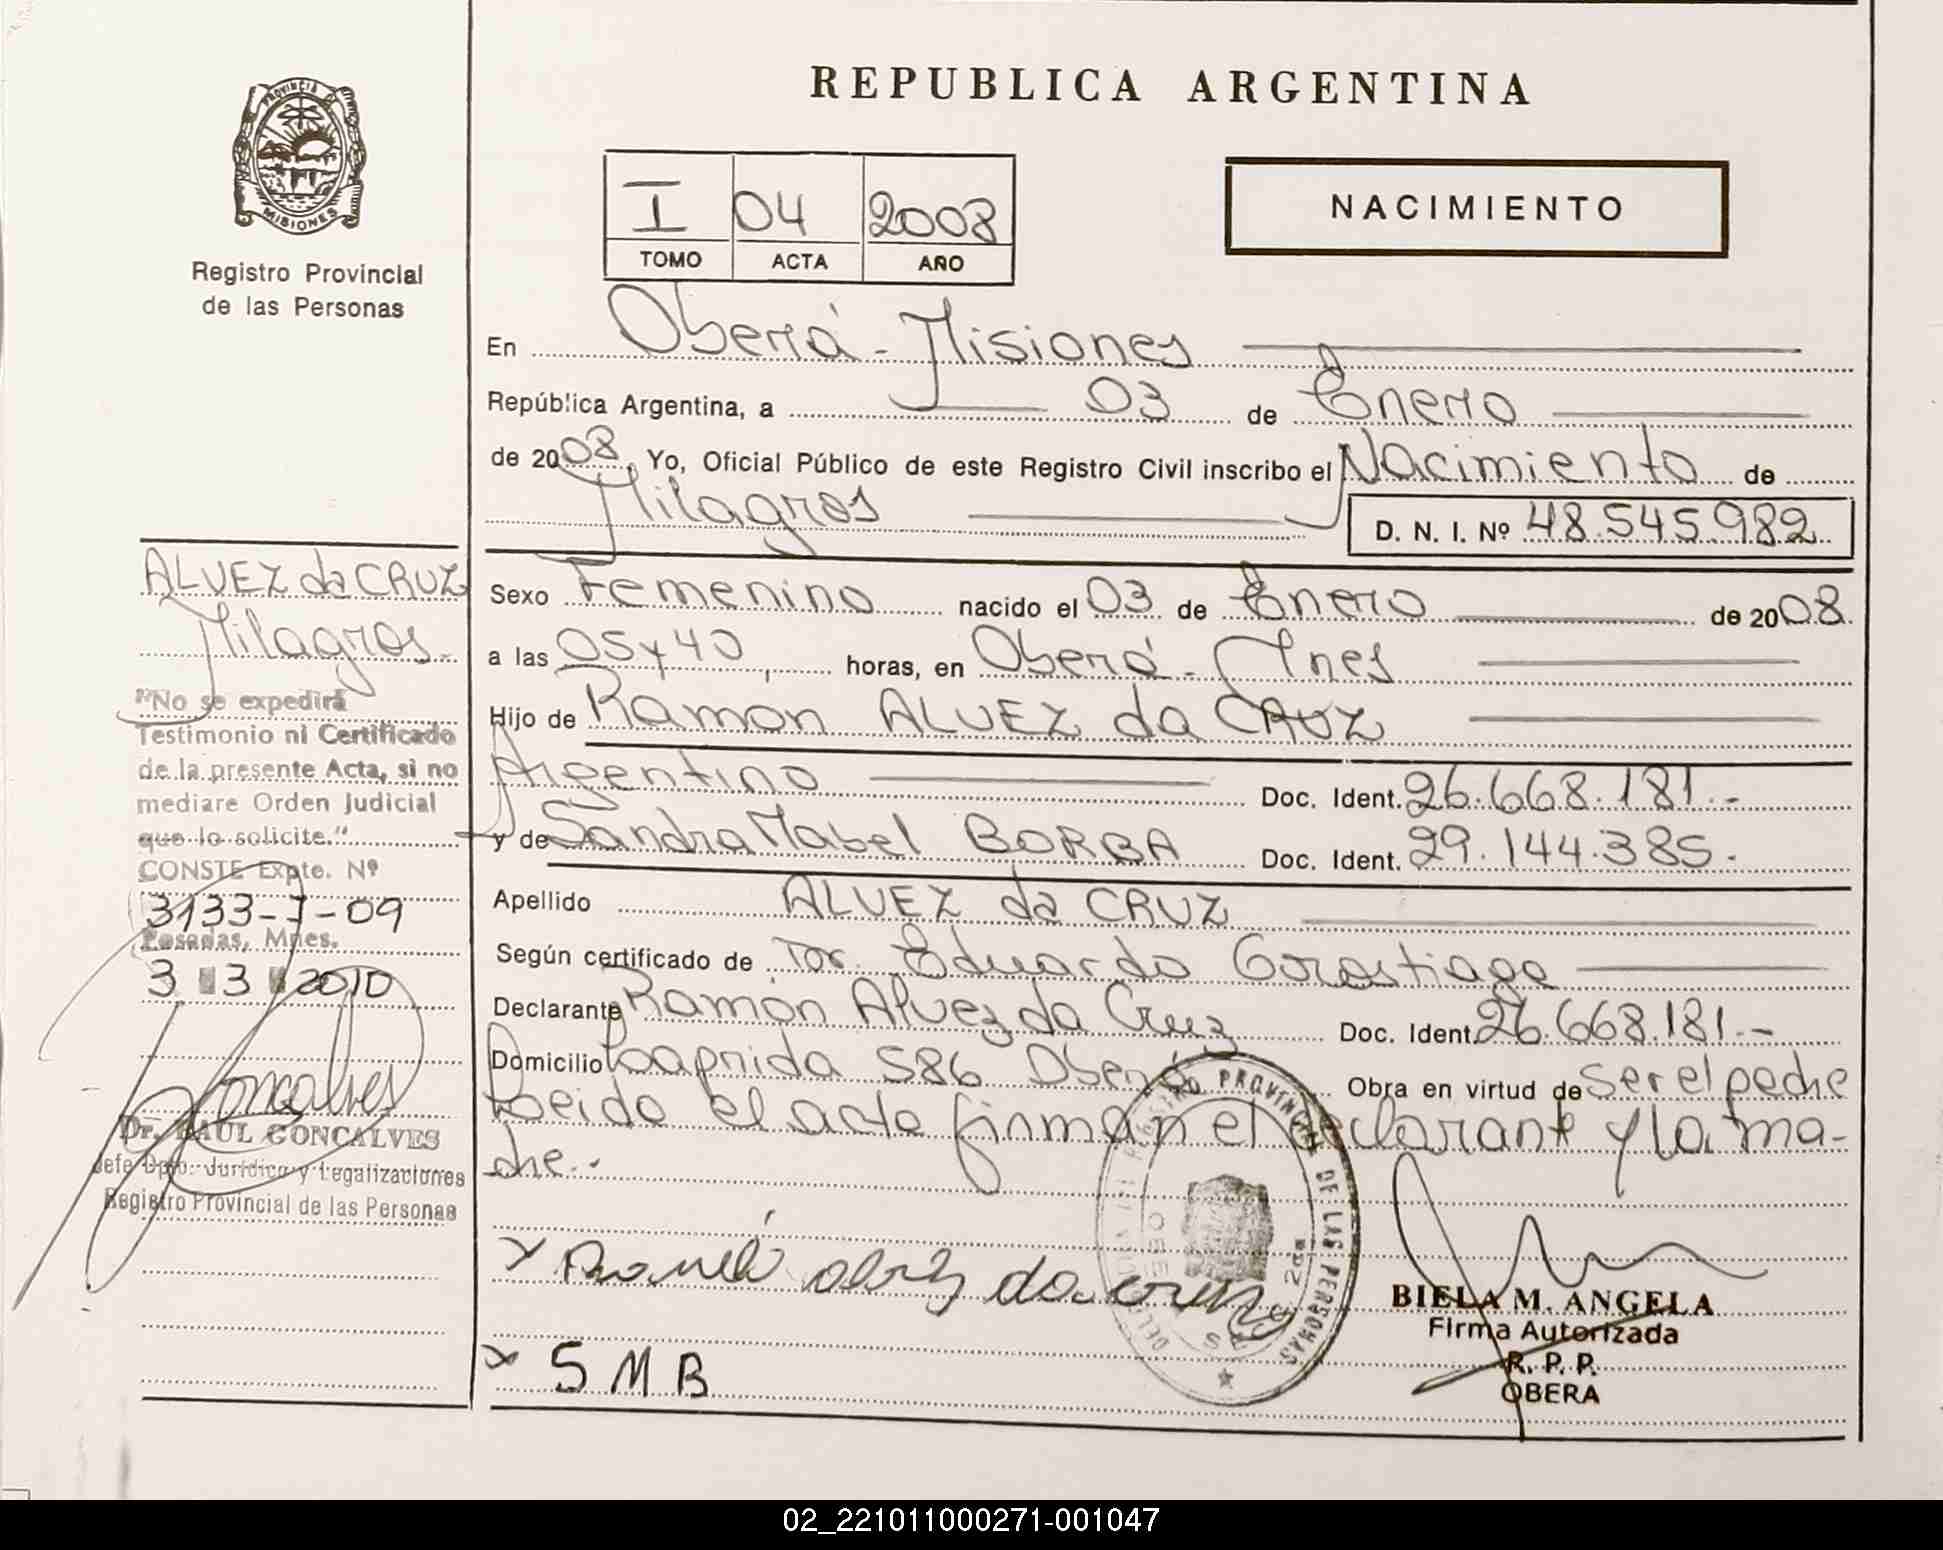 REPUBLICA ARGENTINA
PROVINCIA DE
MISIONES
Registro Provincial
de las Personas
I 04 2008
TOMO ACTA AÑO
NACIMIENTO
En Oberá - Misiones
República Argentina, a 03 de Enero
de 2008, Yo, Oficial Público de este Registro Civil inscribo el Nacimiento de
Milagros
D. N. I. Nº 48.545.982
Sexo Femenino nacido el 03 de Enero de 2008.
a las 05 y 40 horas, en Oberá - Mnes
Hijo de Ramón ALVEZ da CRUZ
Argentino Doc. Ident. 26.668.181.-
y de Sandra Mabel BORBA Doc. Ident. 29.144.385.
Apellido ALVEZ da CRUZ
Según certificado de Eduardo Gorostiaga
Declarante Ramón Alvez da Cruz Doc. Ident. 26.668.181.-
Domicilio Laprida 586 Oberá Obra en virtud de ser el padre
Leida el acta firman el declarante y la ma-
dre.-
x Ramón alvez da cruz
x S M B
BIELA M. ANGELA
Firma Autorizada
R. P. P.
OBERA
REGISTRO PROVINCIAL DE LAS PERSONAS
ALVEZ da CRUZ
Milagros.
"No se expedirá
Testimonio ni Certificado
de la presente Acta, si no
mediare Orden Judicial
que lo solicite."
CONSTE Expte. Nº
3133-J-09
Posadas, Mnes.
3 3 2010
Goncalves
Dr. RAUL GONCALVES
Jefe Dpto. Jurídico y Legalizaciones
Registro Provincial de las Personas
02_221011000271-001047